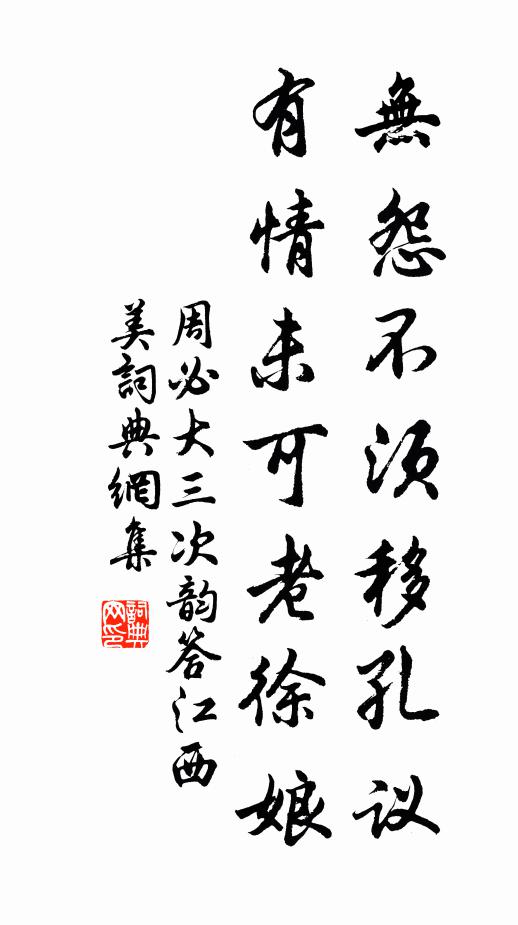 無怨不須移孔议
有情未可老徐娘
周必大三次韵答江西
美詞典網集
詞典網印